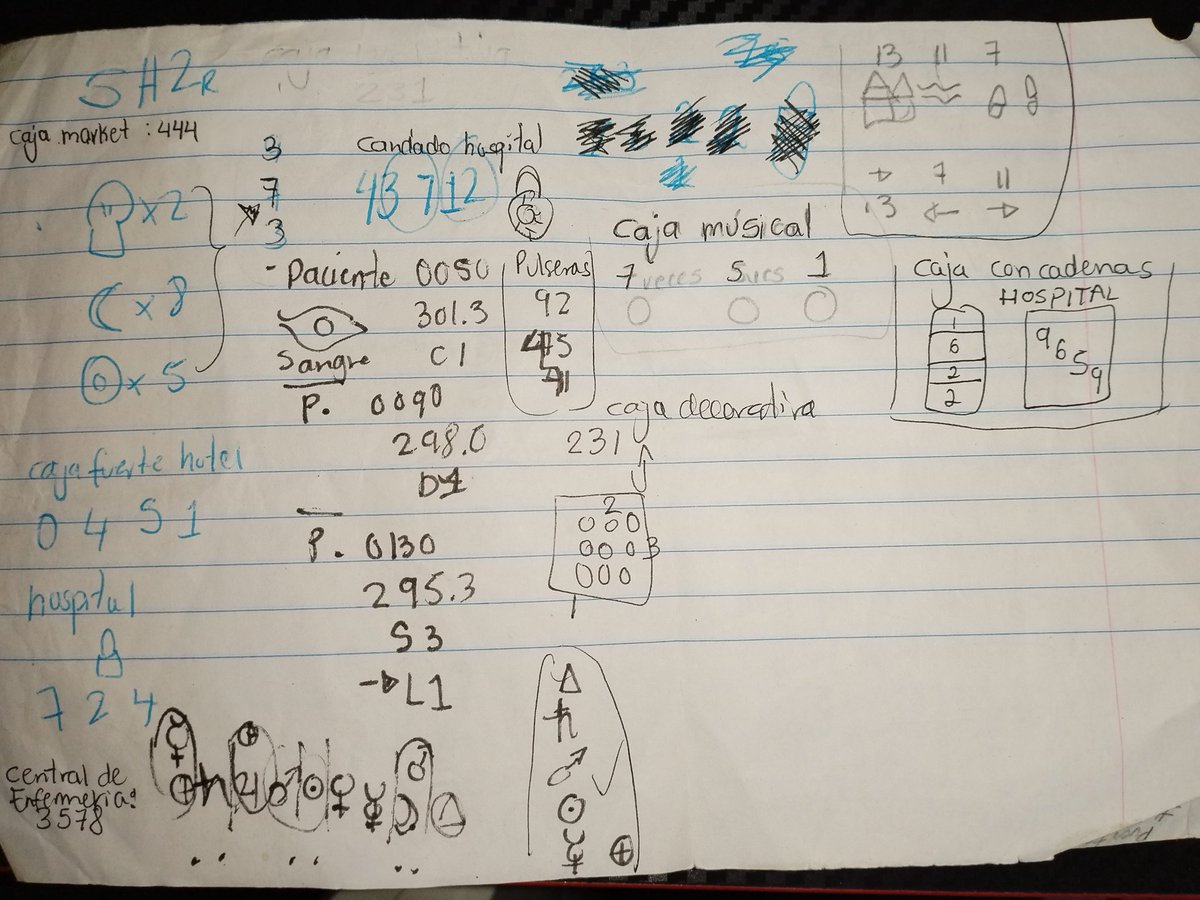 SH2R
caja market : 444
x 2
x 8
x 5
3
7
3
caja fuerte hotel
0 4 5 1
hospital
7 2 4
Central de
Enfermería:
3578
231
candado hospital
43 7 12
- Paciente 0050
301.3
Sangre C1
P. 0090
298.0
D1
P. 0130
295.3
S3
L1
Pulseras
92
45
71
caja músical
7 veces 5 veces 1
caja decorativa
231
2
3
1
13 11 7
7 11
13
caja con cadenas
HOSPITAL
1
6
2
2
9659